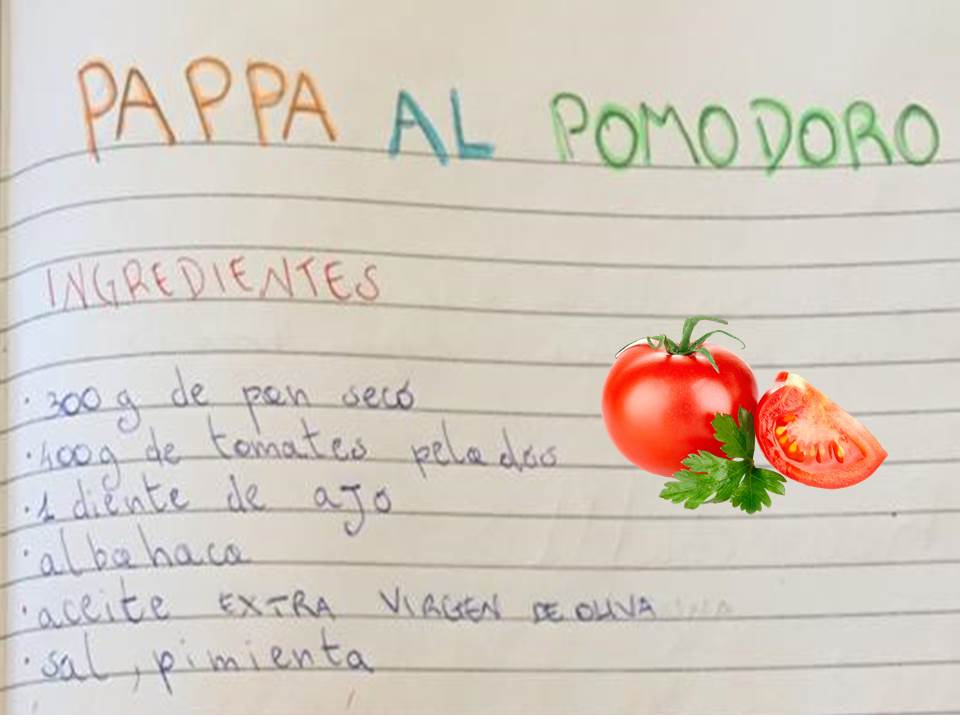 PAPPA AL POMODORO
INGREDIENTES
· 300g de pan seco
· 400g de tomates pelados
· 1 diente de ajo
· albahaca
· aceite EXTRA VIRGEN DE OLIVA
· sal, pimienta